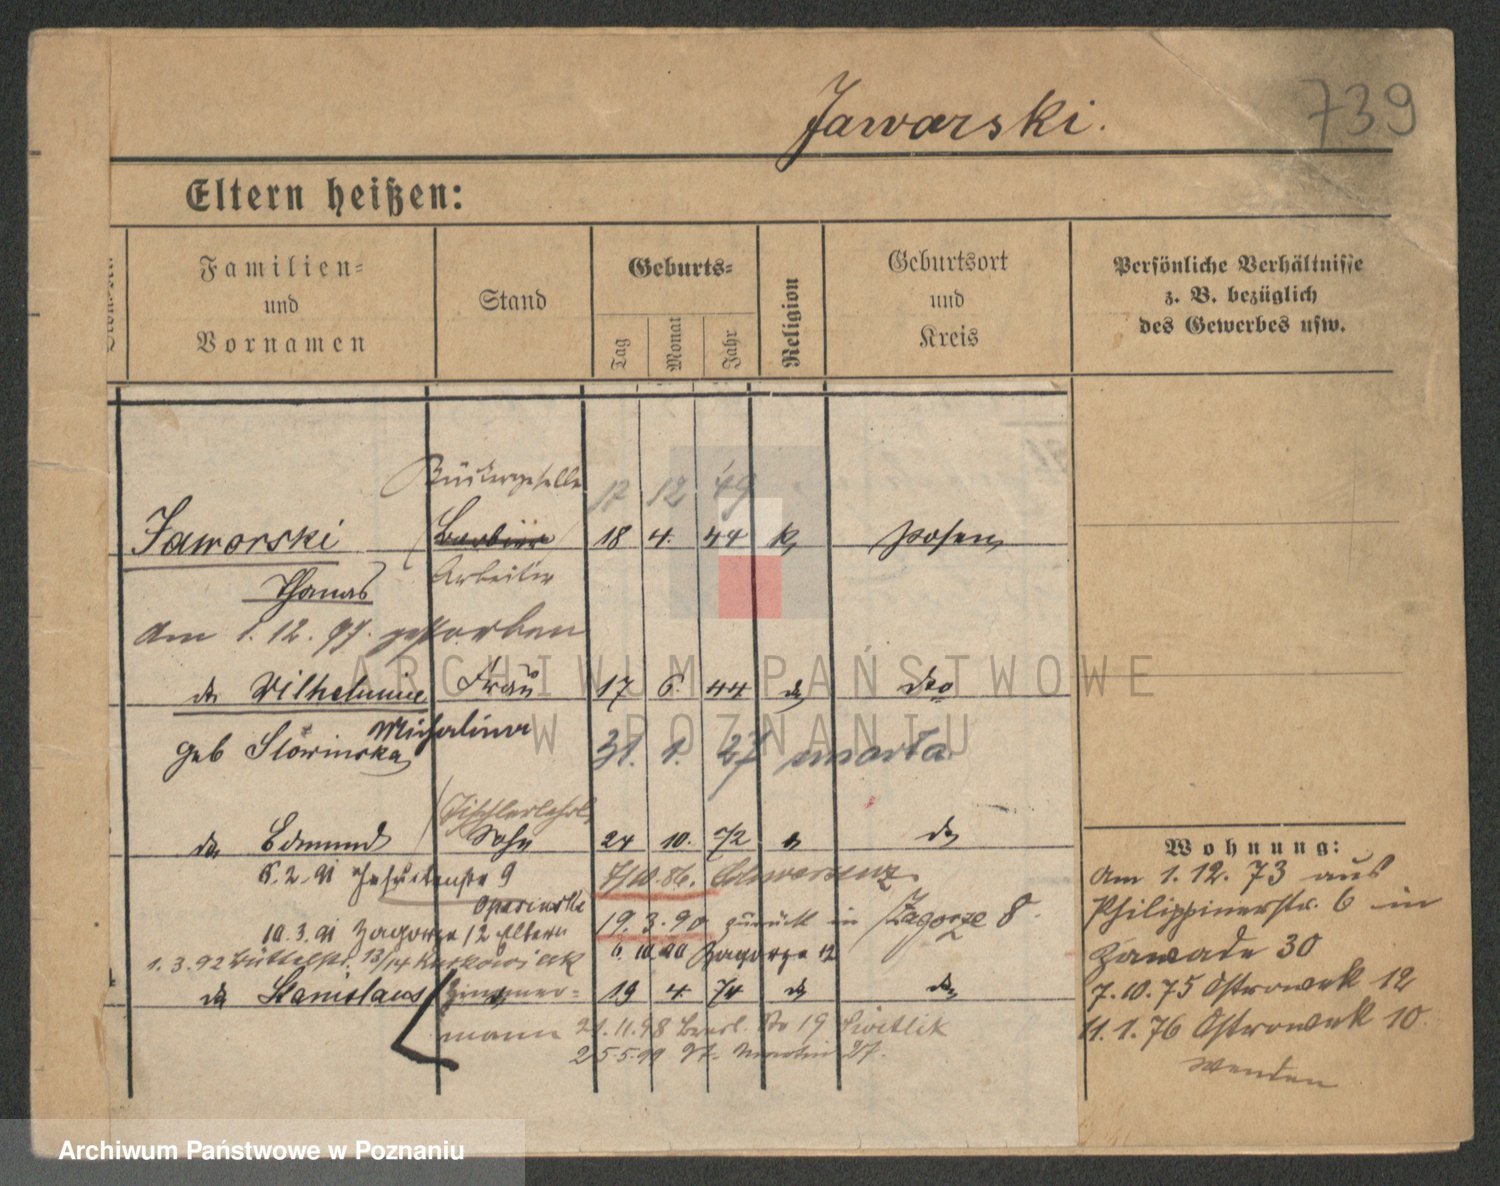 Jaworski.
739
Eltern heißen:
Familien- und Vornamen
Stand
Geburts-
Tag
Monat
Jahr
Religion
Geburtsort und Kreis
Persönliche Verhältnisse z. B. bezüglich des Gewerbes usw.
17 12 49
Jaworski Barbier 18 4. 44 k Posen
Thomas Arbeiter
Am 1.12.97. gestorben
do Wilhelmine Frau 17 6. 44 do dto
Michalina
geb Slowinska 31. 1. 27
Tischlerlehrl.
do Edmund Sohn 24 10. 72 do
6.2.91 9 7/10.86. Schwersenz
19.3.90 zurück in Zagorze 8.
10.3.91 Zagorze 12 Eltern 6.10.90 Zagorze 12
1.3.92 Büttelstr. 13/14
do Stanislaus Zimmer- 19 4 74 do do
mann 21.11.98 19
25.5.99 27.
Wohnung:
Am 1.12.73 aus
Philippinerstr. 6 in
Zawade 30
7.10.75 Ostrowek 12
11.1.76 Ostrowek 10.
wenden
ARCHIWUM PAŃSTWOWE
W POZNANIU
Archiwum Państwowe w Poznaniu